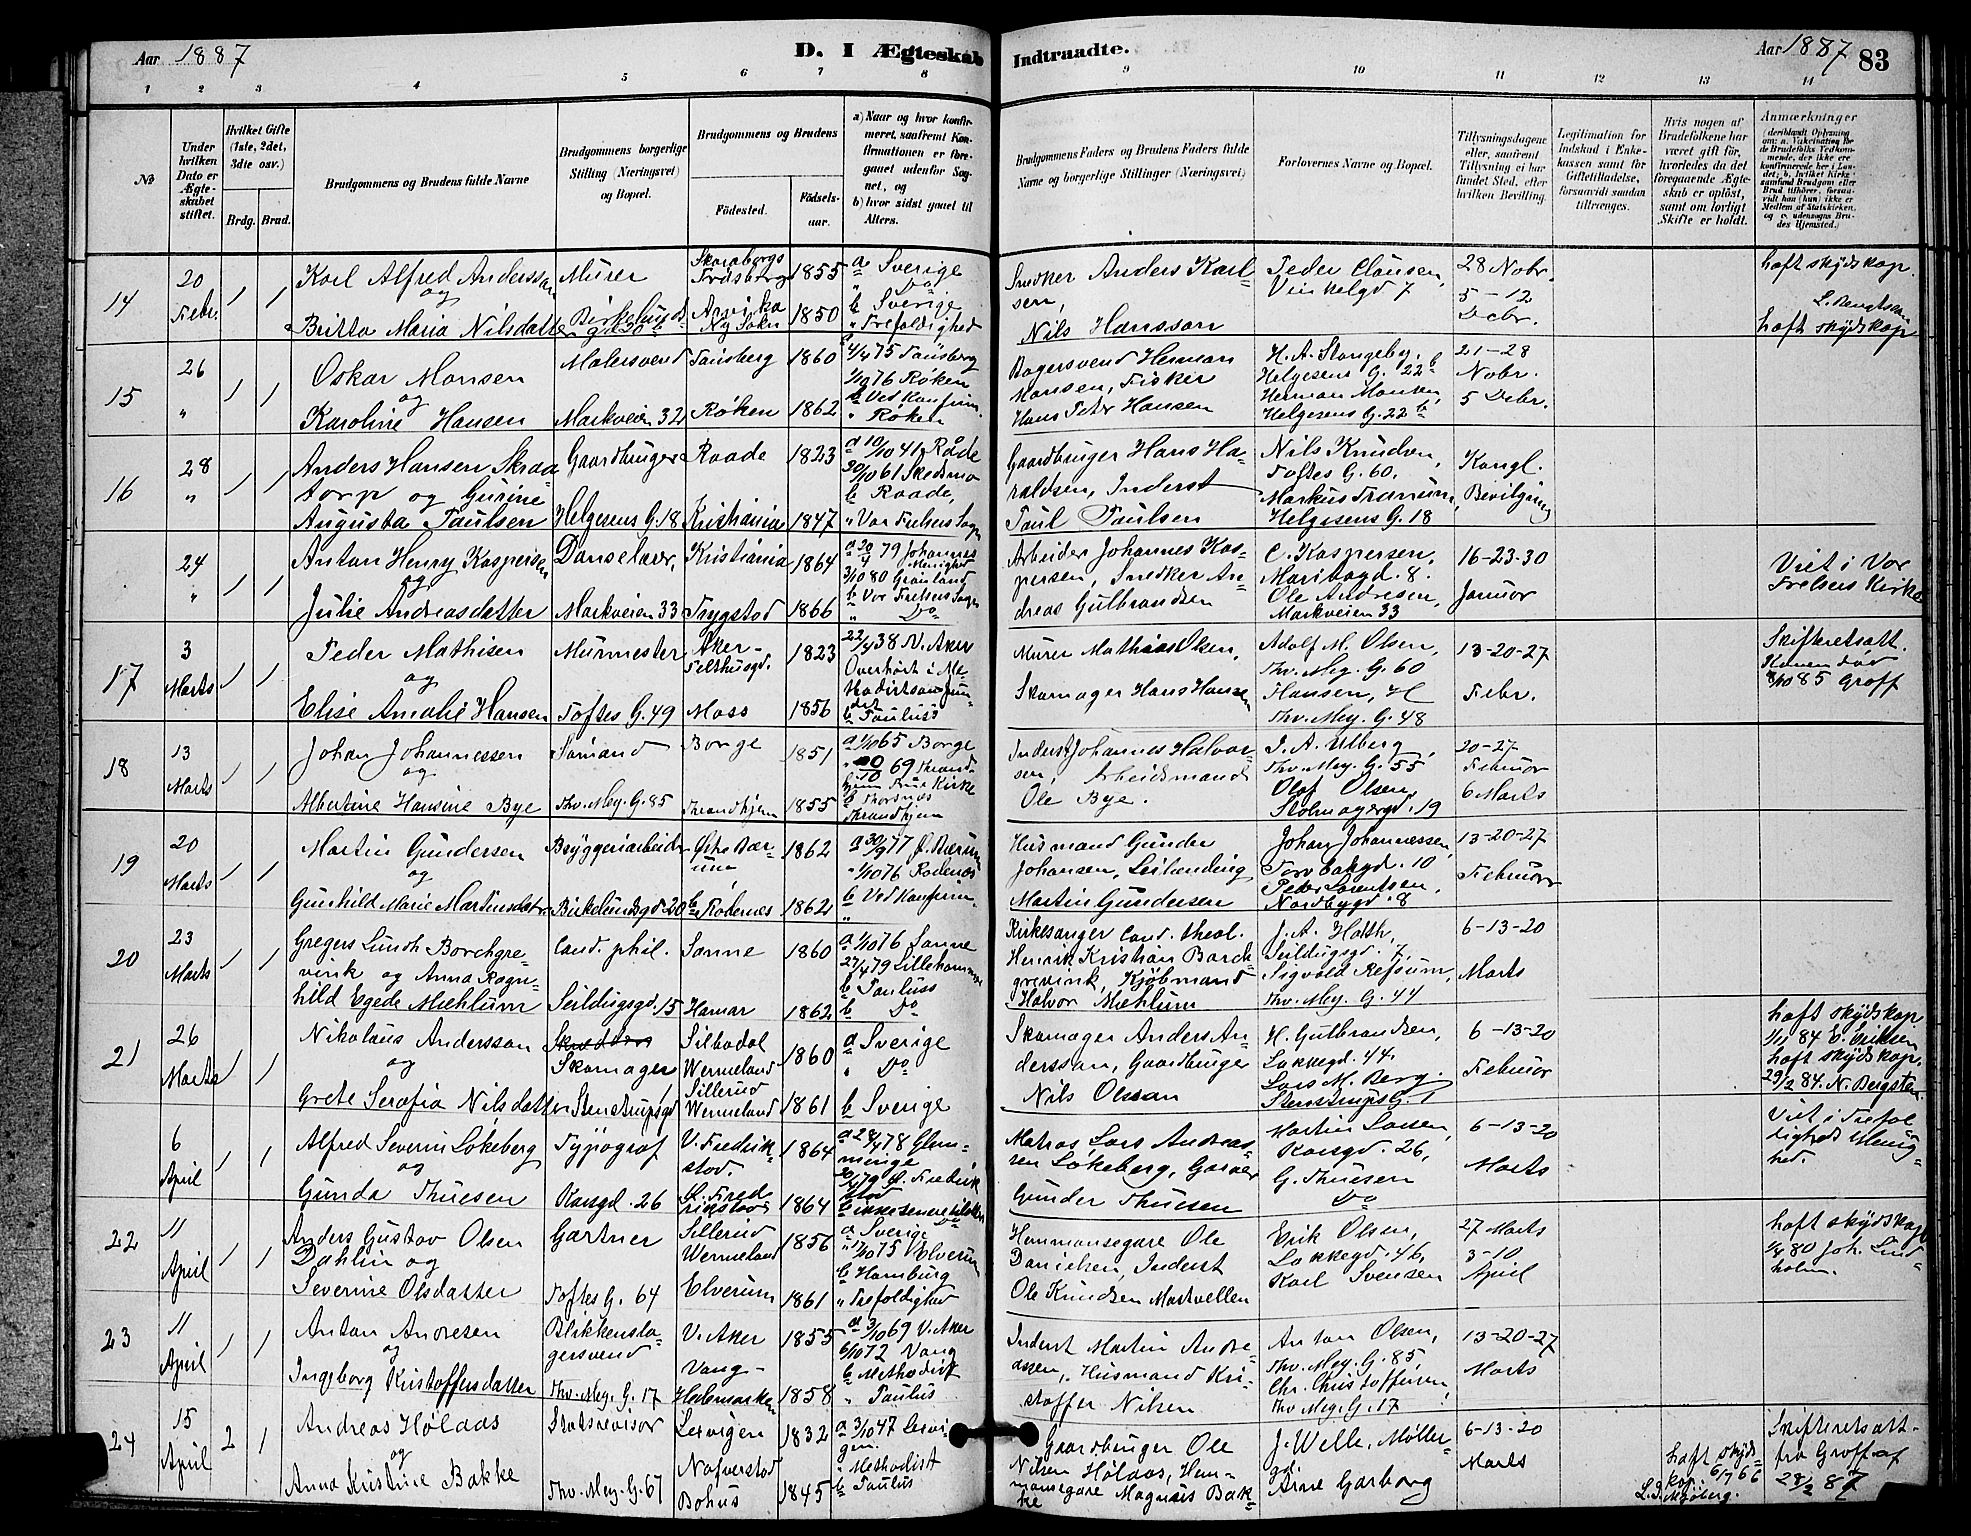 Aar 1887
D. I Ægteskab Indtraadte.
Aar 1887
83
1 2 3 4 5 6 7 8 9 10 11 12 13 14
No
Under hvilken Dato er Ægteskabet stiftet.
Hvilket Gifte (1ste, 2det, 3die osv.)
Brdg. Brud.
Brudgommens og Brudens fulde Navne
Brudgommens borgerlige Stilling (Næringsvei) og Bopæl.
Brudgommens og Brudens
Fødested.
Fødselsaar.
a) Naar og hvor konfirmeret, saafremt Konfirmationen er foregaaet udenfor Sognet, og
b) hvor sidst gaaet til Alters.
Brudgommens Faders og Brudens Faders fulde Navne og borgerlige Stillinger (Næringsvei)
Forlovernes Navne og Bopæl.
Tillysningsdagene eller, saafremt Tillysning ei har fundet Sted, efter hvilken Bevilling.
Legitimation for Indskud i Enkekassen samt for Giftetilladelse, forsaavidt saadan tiltrænges.
Hvis nogen af Brudefolkene har været gift før, hvorledes da det foregaaende Ægteskab er opløst, samt om lovligt Skifte er holdt.
Anmærkninger
14
20 Febr.
1 1
Karl Alfred Andersson
og
Britta Maria Nilsdatter
Murer
1855
Arvika Ny Sokn 1850
a Sverige
" Do
b Sverige
" Trefoldighed
Snedker Anders Karlsen,
Nils Hansson
Peder Clausen,
Vinkelgd 7
28 Nobr.
5-12
Debr.
haft skydskop.
haft skydskop
15
26
"
1 1
Oskar Monsen
og
Karoline Hansen
Malersvend
Markveien 32
Tønsberg 1860
Røken 1862
4/4 75 Tønsberg
1/10 76 Røken
b Ved Konfirm.
" Røken
Bagersvend Herman
Monsen, Fisker
Hans Peter Hansen
H. A. Stangeby,
Helgesens G. 22b
Herman Monsen,
Helgesens G. 22b
21-28
Nobr.
5 Debr.
16
28
"
1 1
Anders Hansen Skraa
torp og Gurine
Augusta Paulsen
Gaardbruger
Helgesens G. 18
Raade 1823
Kristiania 1847
a 10/10 41 Råde
20/10 61 Skedsmo
b Raade,
" Vor Frelsers Sogn
Gaardbruger Hans Ha-
raldsen, Inderst
Paul Paulsen
Nils Knudsen,
Toftes G. 60.
Markus Tranum,
Helgesens G. 18
Kongl.
Bevilgning
24
"
1 1
Anton Henry Kaspersen
og
Julie Andreasdatter
Danselærer,
Markveien 33
Kristiania 1864
Trygstad 1866
a 20/4 79 Johannes Menighed
3/10 80 Grønland
b Vor Frelsers Sogn
" Do
Arbeider Johannes Kas-
persen, Snedker An-
dreas Gulbrandsen
C. Kaspersen,
Maribogd. 8.
Ole Andresen,
Markveien 33
16-23-30
Januar
Viet i Vor
Frelsers Kirke
17
3
Marts
1 1
Peder Mathisen
og
Elise Amalie Hansen
Murmester
Toftes G. 49
Aker-
Felthusgd. 1823
Moss 1856
22/4 38 V. Aker
Overhørt i Me-
thodistsamfun-
det
b Paulus
Murer Mathias Olsen,
Skomager Hans Hansen
Adolf M. Olsen,
Thv. Mey. G. 60
Hansen, H
Thv. Mey. G. 48
13-20-27
Febr.
Skifteretsatt.
Konen død
8/10 85 Groff
18
13
Marts
1 1
Johan Johannessen
og
Albertine Hansine Bye
Sømand
Thv. Mey. G. 85
Borge 1851
Throndhjem 1855
a 1/10 65 Borge
69 Thrond-
hjem Frue Kirke
b Thorsnæs
Throndhjem
Inderst Johannes Halvor-
sen, Arbeidsmand
Ole Bye.
J. A. Ulberg,
Thv. Mey. G. 55
Olaf Olsen,
Stolmagergd. 19
20-27
Februar
6 Marts
19
20
Marts
1 1
Martin Gundersen
og
Gunhild Marie Martinsdatter
Bryggeriarbeider
Birkelundsgd. 20
Østre Bær-
um 1862
Rødenes 1862
a 30/9 77 Ø. Bærum
" 1/10 76 Rødenæs
b Ved Konfirm.
"
Husmand Gunder
Johansen, Leilænding
Martin Gundersen
Johan Johannessen,
Torvbakgd. 10
Peder Lorentsen,
Nordbygd. 8
13-20-27
Februar
20
23
Marts
1 1
Gregers Lundh Borchgre-
vink og Anna Ragn-
hild Egede Mæhlum
Cand. phil.
Seildugsgd. 15
Sonne 1860
Hamar 1862
a 1/10 76 Sonne
27/4 79 Lillehammer
b Paulus
b Do
Kirkesanger Cand. theol.
Henrik Kristian Borch-
grevink, Kjøbmand
Halvor Mæhlum
J. A. Holth,
Seildugsgd. 7,
Sigvald Refsum,
Thv. Mey. G. 44
6-13-20
Marts
21
26
Marts
1 1
Nikolaus Andersson
og
Grete Serafia Nilsdatter
Skomager
Stenstrupsgd 1
Silbodal
Wermeland 1860
Sillerud
Wermeland 1861
a Sverige
" Do
b Sverige
Skomager Anders An-
dersson, Gaardbruger
Nils Olsson
H. Gulbrandsen,
Løkkegd. 44.
Lars M. Berg,
Stenstrups G. 1
6-13-20
Februar
haft skydskop
1/11 84 E. Eriksen
haft skydskop.
29/2 84. N. Bergsten
6
April
1 1
Alfred Severin Løkeberg
og
Gunda Thuesen
Typograf
Korsgd. 26
V. Fredrik-
stad. 1864
Ø. Fred-
rikstad 1864
a 28/4 78 Glem-
minge
20/4 79 Ø. Fredrik
stad
b ikke senere til alters
Do
Matros Lars Andreas-
sen Løkeberg, Garver
Gunder Thuesen
Martin Larsen,
Korsgd. 26,
G. Thuesen
Do
6-13-20
Marts
Viet i Trefol
digheds Menig-
hed.
22
11
April
1 1
Anders Gustav Olsen
Dahlin og
Severine Olsdatter
Gartner
Toftes G. 64
Sillerud
Wermeland 1856
Elverum 1861
a Sverige
" 1/10 75 Elverum
b Hamburg
" Trefoldighed
Hemmansegare Ole
Danielsen, Inderst
Ole Knudsen Martvellen
Erik Olsen,
Løkkegd. 46,
Karl Svensen
27 Marts
3-10
April
haft skydskop
1/4 80 Joh. Lind-
holm.
23
11
April
1 1
Anton Andresen
og
Ingeborg Kristoffersdatter
Blikkensla-
gersvend
Thv. Mey. G. 17
V. Aker 1855
Vang-
Hedemarken 1858
a 3/10 69 V. Aker
6/10 72 Vang
b Methodist
" Paulus
Inderst Martin Andre-
assen, Husmand Kri-
stoffer Nilsen
Anton Olsen,
Thv. Mey. G. 85,
Chr. Christoffersen,
Thv. Mey. G. 17
13-20-27
Marts
24
15
April
2 1
Andreas Hølaas
og
Anna Kristine Bakke
Statsrevisor
Thv. Mey. G. 67
Lexvigen 1832
Nafverstad
Bohus 1845
a 3/10 47 Lexvi-
gen
" Methodist
b Paulus
Gaardbruger Ole
Nilsen Hølaas, Hem-
mansegare Magnus Bak-
ke
J. Welle, Møller-
gd.
Arne Garborg
6-13-20
Marts
haft skyds-
kop. 6/7 66
L. J. Mjøberg.
Skifteretsatt-
fra Groff af
28/2 87